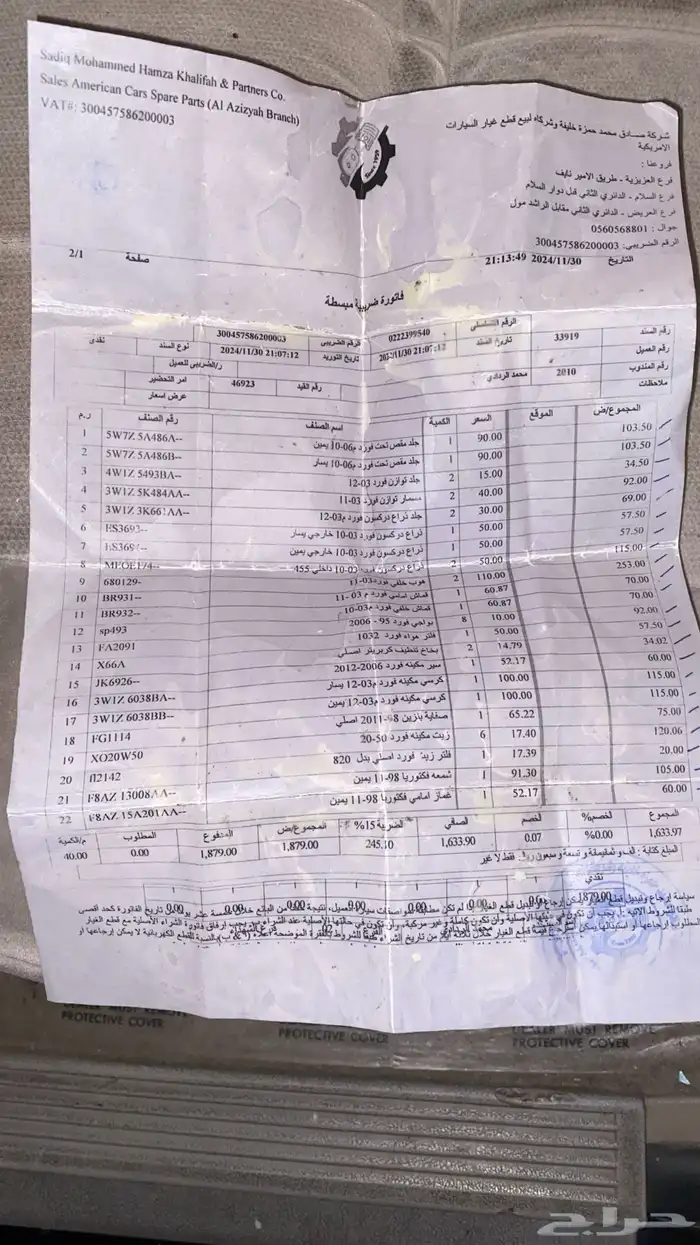 Sadiq Mohammed Hamza Khalifah & Partners Co.
Sales American Cars Spare Parts (Al Azizyah Branch)
VAT#: 300457586200003
Since 1997
شركة صادق محمد حمزة خليفة وشركاه لبيع قطع غيار السيارات
الامريكية
فروعنا :
فرع العزيزية - طريق الامير نايف
فرع السلام - الدائري الثاني قبل دوار السلام
فرع العريض - الدائري الثاني مقابل الراشد مول
جوال : 0560568801
الرقم الضريبي: 300457586200003
التاريخ 2024/11/30 21:13:49
صفحة 2/1
فاتورة ضريبية مبسطة
رقم السند 33919 الرقم التسلسلي 0222399540 الرقم الضريبي 300457586200003 نوع السند نقدي
رقم العميل تاريخ السند 21:07:12 تاريخ التوريد 2024/11/30 21:07:12
رقم المندوب 2010 محمد الردادي ر/الضريبى للعميل
ملاحظات رقم القيد 46923 امر التحضير
عرض اسعار
ر.م رقم الصنف اسم الصنف الكمية السعر الموقع المجموع/ض
1 5W7Z 5A486A-- جلد مقص تحت فورد م06-10 يمين 1 90.00 103.50
2 5W7Z 5A486B-- جلد مقص تحت فورد م06-10 يسار 1 90.00 103.50
3 4W1Z 5493BA-- جلد توازن فورد 03-12 2 15.00 34.50
4 3W1Z 5K484AA-- مسمار توازن فورد 03-11 2 40.00 92.00
5 3W1Z 3K661AA-- جلد ذراع دركسون فورد م03-12 2 30.00 69.00
6 ES3693-- ذراع دركسون فورد 03-10 خارجي يسار 1 50.00 57.50
7 ذراع دركسون فورد 03-10 خارجي يمين 1 50.00 57.50
8 ذراع دركسون فورد 03-10 داخلي 455 2 50.00 115.00
9 680129- هوب خلفي فورد 03-11 2 110.00 253.00
10 BR931-- قماش امامي فورد م03-11 1 60.87 70.00
11 BR932-- قماش خلفي فورد م03-10 1 60.87 70.00
12 sp493 بواجي فورد 95-2006 8 10.00 92.00
13 FA2091 فلتر هواء فورد 1032 1 50.00 57.50
14 X66A بخاخ تنظيف كربريتر اصلي 2 14.79 34.02
15 JK6926-- سير مكينه فورد 2006-2012 1 52.17 60.00
16 3W1Z 6038BA-- كرسي مكينه فورد م03-12 يسار 1 100.00 115.00
17 3W1Z 6038BB-- كرسي مكينه فورد م03-12 يمين 1 100.00 115.00
18 FG1114 صفاية بنزين 98-2011 اصلي 1 65.22 75.00
19 XO20W50 زيت مكينه فورد 20-50 6 17.40 120.06
20 fl2142 فلتر زيت فورد اصلي بدل 820 1 17.39 20.00
21 F8AZ 13008AA-- شمعه فكتوريا 98-11 يمين 1 91.30 105.00
22 F8AZ 15A201AA-- غماز امامي فكتوريا 98-11 يمين 1 52.17 60.00
المجموع الخصم% الخصم الصافي الضريبة 15% المجموع/ض المدفوع المطلوب م/الكمية
1,633.97 %0.00 0.07 1,633.90 245.10 1,879.00 1,879.00 0.00 40.00
المبلغ كتابة : الف و ثمانيمائة و تسعة وسبعون ريال فقط لا غير
نقدي
1,879.00 0.00 0.00 0.00 0.00 0.00 0.00
DEALER MUST REMOVE
PROTECTIVE COVER
PROTECTIVE COVER
DEALER MUST REMOVE
PROTECTIVE COVER
حراج